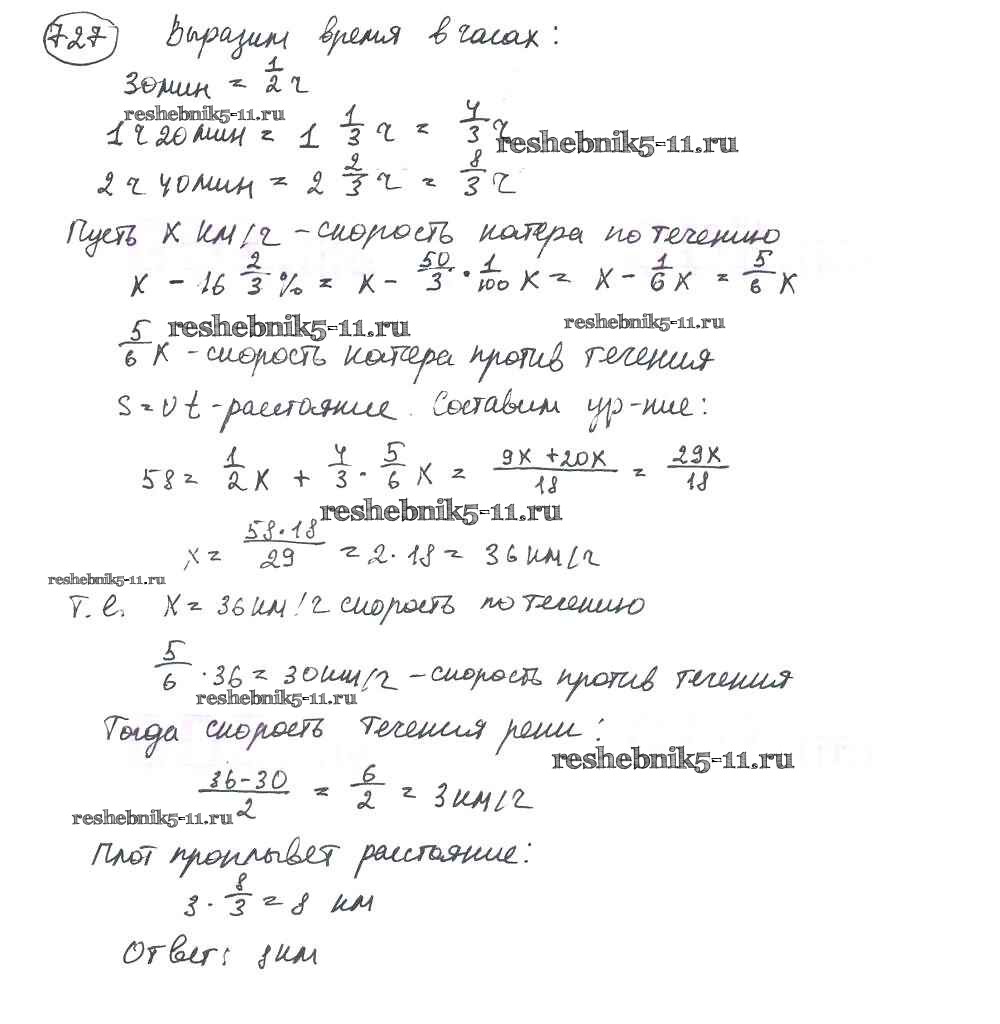 727 Выразим время в часах:
30мин = 1/2 ч
reshebnik5-11.ru
1ч 20мин = 1 1/3 ч = 4/3 ч
reshebnik5-11.ru
2ч 40мин = 2 2/3 ч = 8/3 ч
Пусть x км/ч – скорость катера по течению
x – 16 2/3 % = x – 50/3 · 1/100 x = x – 1/6 x = 5/6 x
reshebnik5-11.ru
reshebnik5-11.ru
5/6 x – скорость катера против течения
S = υt – расстояние. Составим ур-ние:
58 = 1/2 x + 4/3 · 5/6 x = 9x + 20x/18 = 29x/18
reshebnik5-11.ru
x = 58·18/29 = 2·18 = 36 км/ч
reshebnik5-11.ru
Т.е. x = 36км/ч скорость по течению
5/6 · 36 = 30км/ч – скорость против течения
reshebnik5-11.ru
Тогда скорость течения реки:
reshebnik5-11.ru
36–30/2 = 6/2 = 3км/ч
reshebnik5-11.ru
Плот проплывет расстояние:
3 · 8/3 = 8 км
Ответ: 8км